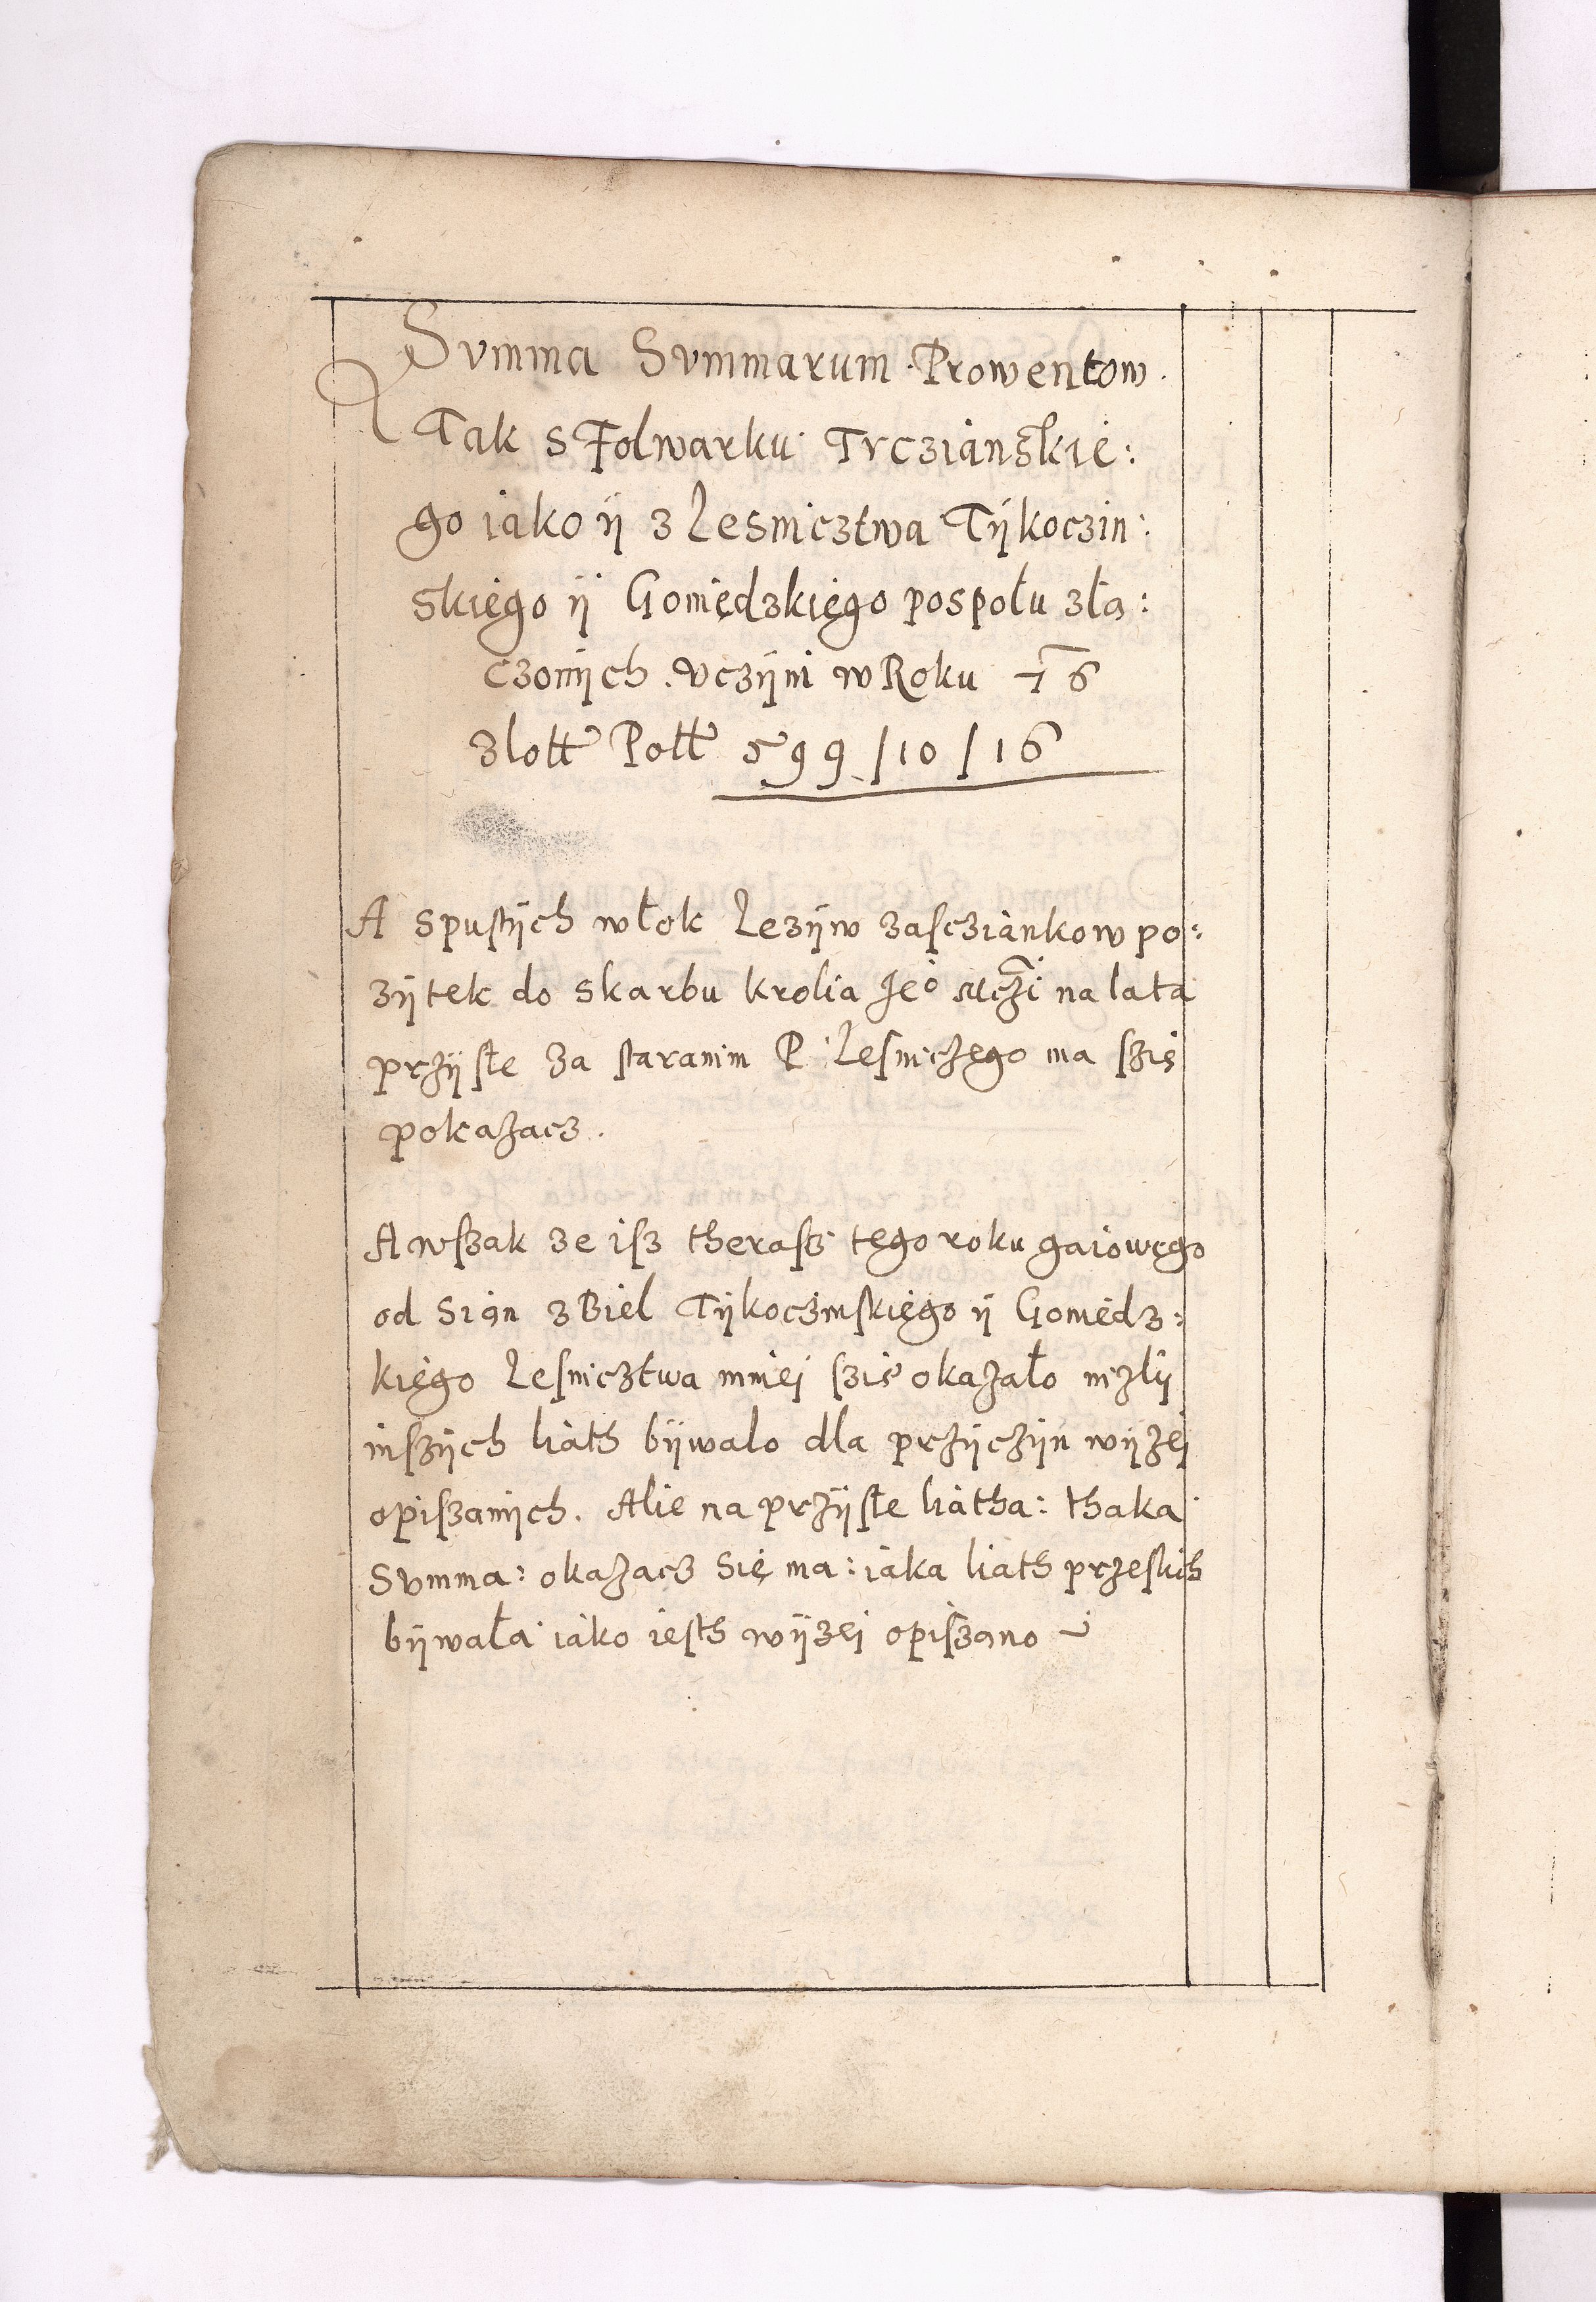 Svmma Svmmarum Prowentow.
Tak s Folwarku Trczianskie:
go iako ÿ z Lesnicztwa Tÿkoczin:
skięgo ÿ Goniędzkięgo pospołu złą:
czonÿch. vczÿni w Roku 76
złott Poll 599 / 10 / 16
A spustÿch włok Lezÿw zascziankow po:
zÿtek do skarbu krolia Jeo na lata
przÿsłe za staranim P. Lesniczego ma szię
pokazacz.
A wszak ze isz therasz tego roku gaiowęgo
od Sian z Biel Tÿkoczinskięgo ÿ Goniędz:
kięgo Lesnicztwa mniei szię okazało nizlÿ
inszÿch liath bÿwało dla przÿczÿn wÿzei
opiszanÿch. Alie na przÿsłe liatha: thaka
Svmma: okazacz Się ma: iaka liath przeslich
bÿwała iako iesth wÿzei opiszano